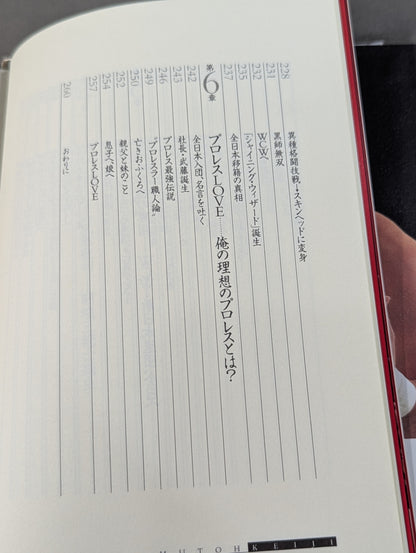 228 異種格闘技戦→スキンヘッドに変身
231 黒師無双
232 WCWへ
235 「シャイニング・ウィザード」誕生
237 全日本移籍の真相
第6章 プロレスLOVE 俺の理想のプロレスとは?
242 全日本入団、名言を吐く
243 社長・武藤誕生
246 プロレス最強伝説
249 “プロレスラー職人論”
250 亡きおふくろへ
252 親父と妹のこと
254 息子へ、娘へ
257 プロレスLOVE
260 おわりに
MUTOH KEIJI